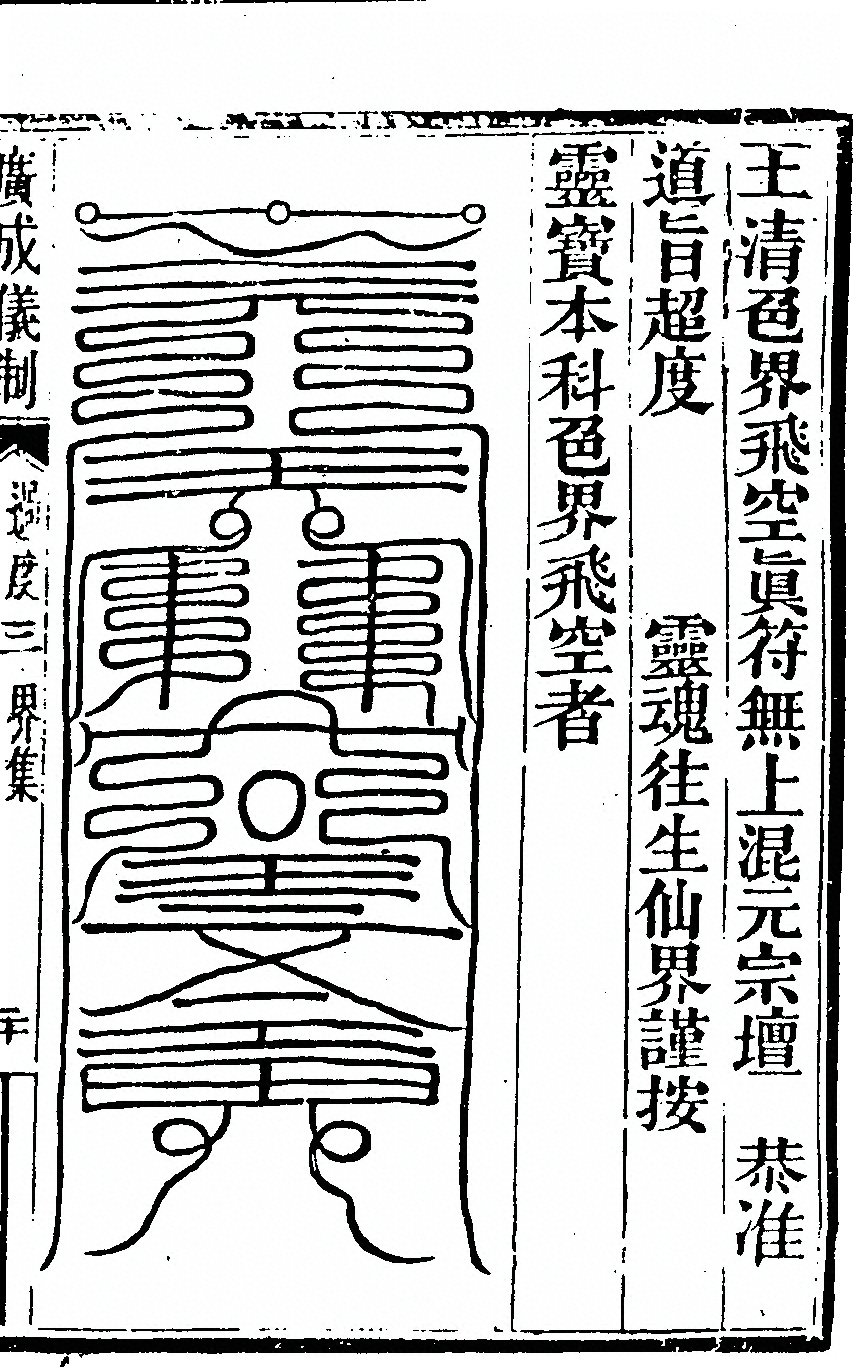 王清色界飛空眞符無上混元宗壇　恭准
道旨超度　　　靈魂往生仙界謹按
靈寶本科色界飛空者
廣成儀制
三界集